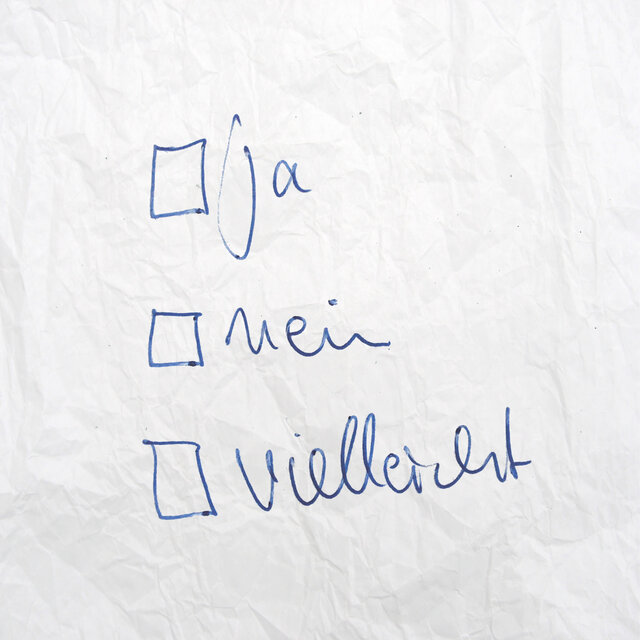 ja
nein
vielleicht